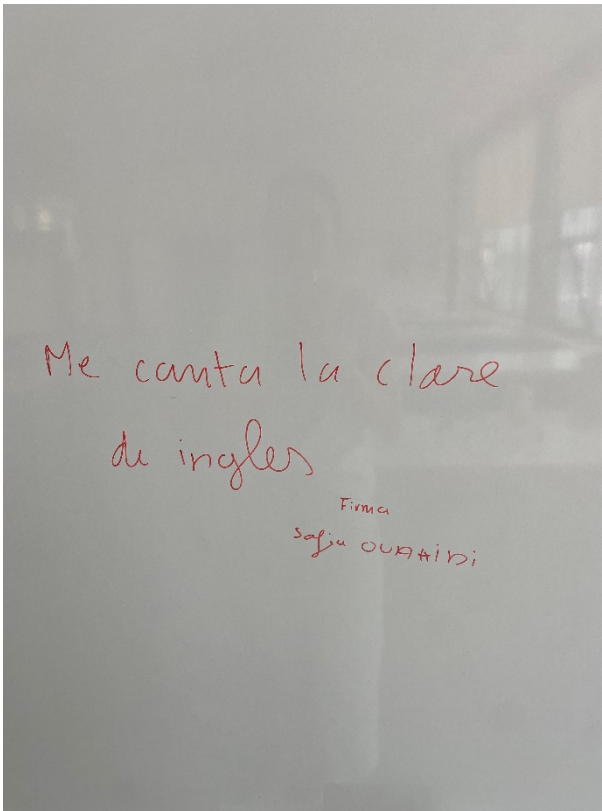 Me canta la clase
de ingles
Firma
Safia OUAHiDi